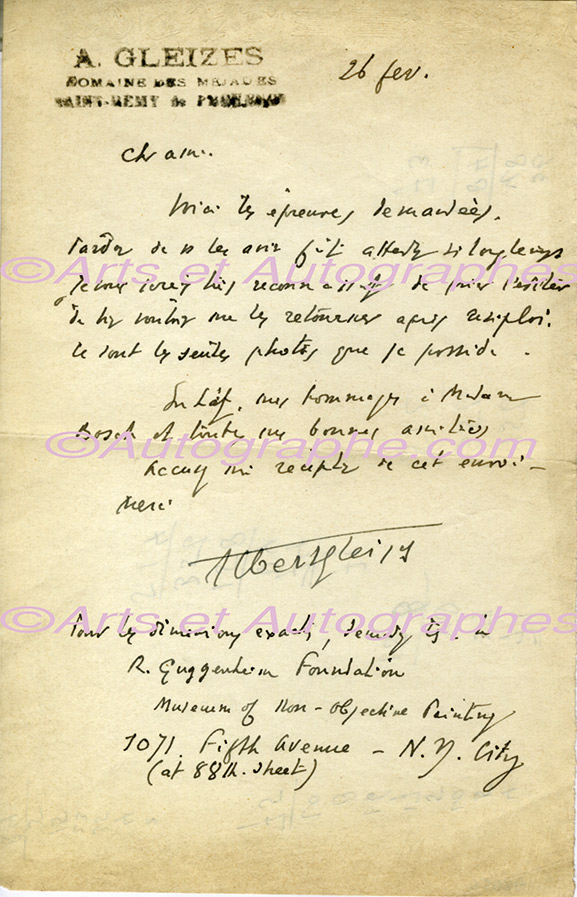 A. GLEIZES
DOMAINE DES MEJADES
SAINT-REMY de PROVENCE
26 fev.
Ch ami.
Voici les épreuves demandées.
Pardon de les avoir fait attendre si longtemps
©Arts et Autographes
Je vous serais très reconnaissant de prier
de me les retourner après
Ce sont les seules photos que je possède.
mes hommages à Madame
Bosch et toutes mes bonnes amitiés
©Autographe.com
réception de cet envoi -
Merci
Albert Gleizes
©Arts et Autographes
Pour les dimensions exactes,
R. Guggenheim Foundation
Museum of Non-Objective Painting
1071. Fifth Avenue - N.Y. City
(at 88th. street)